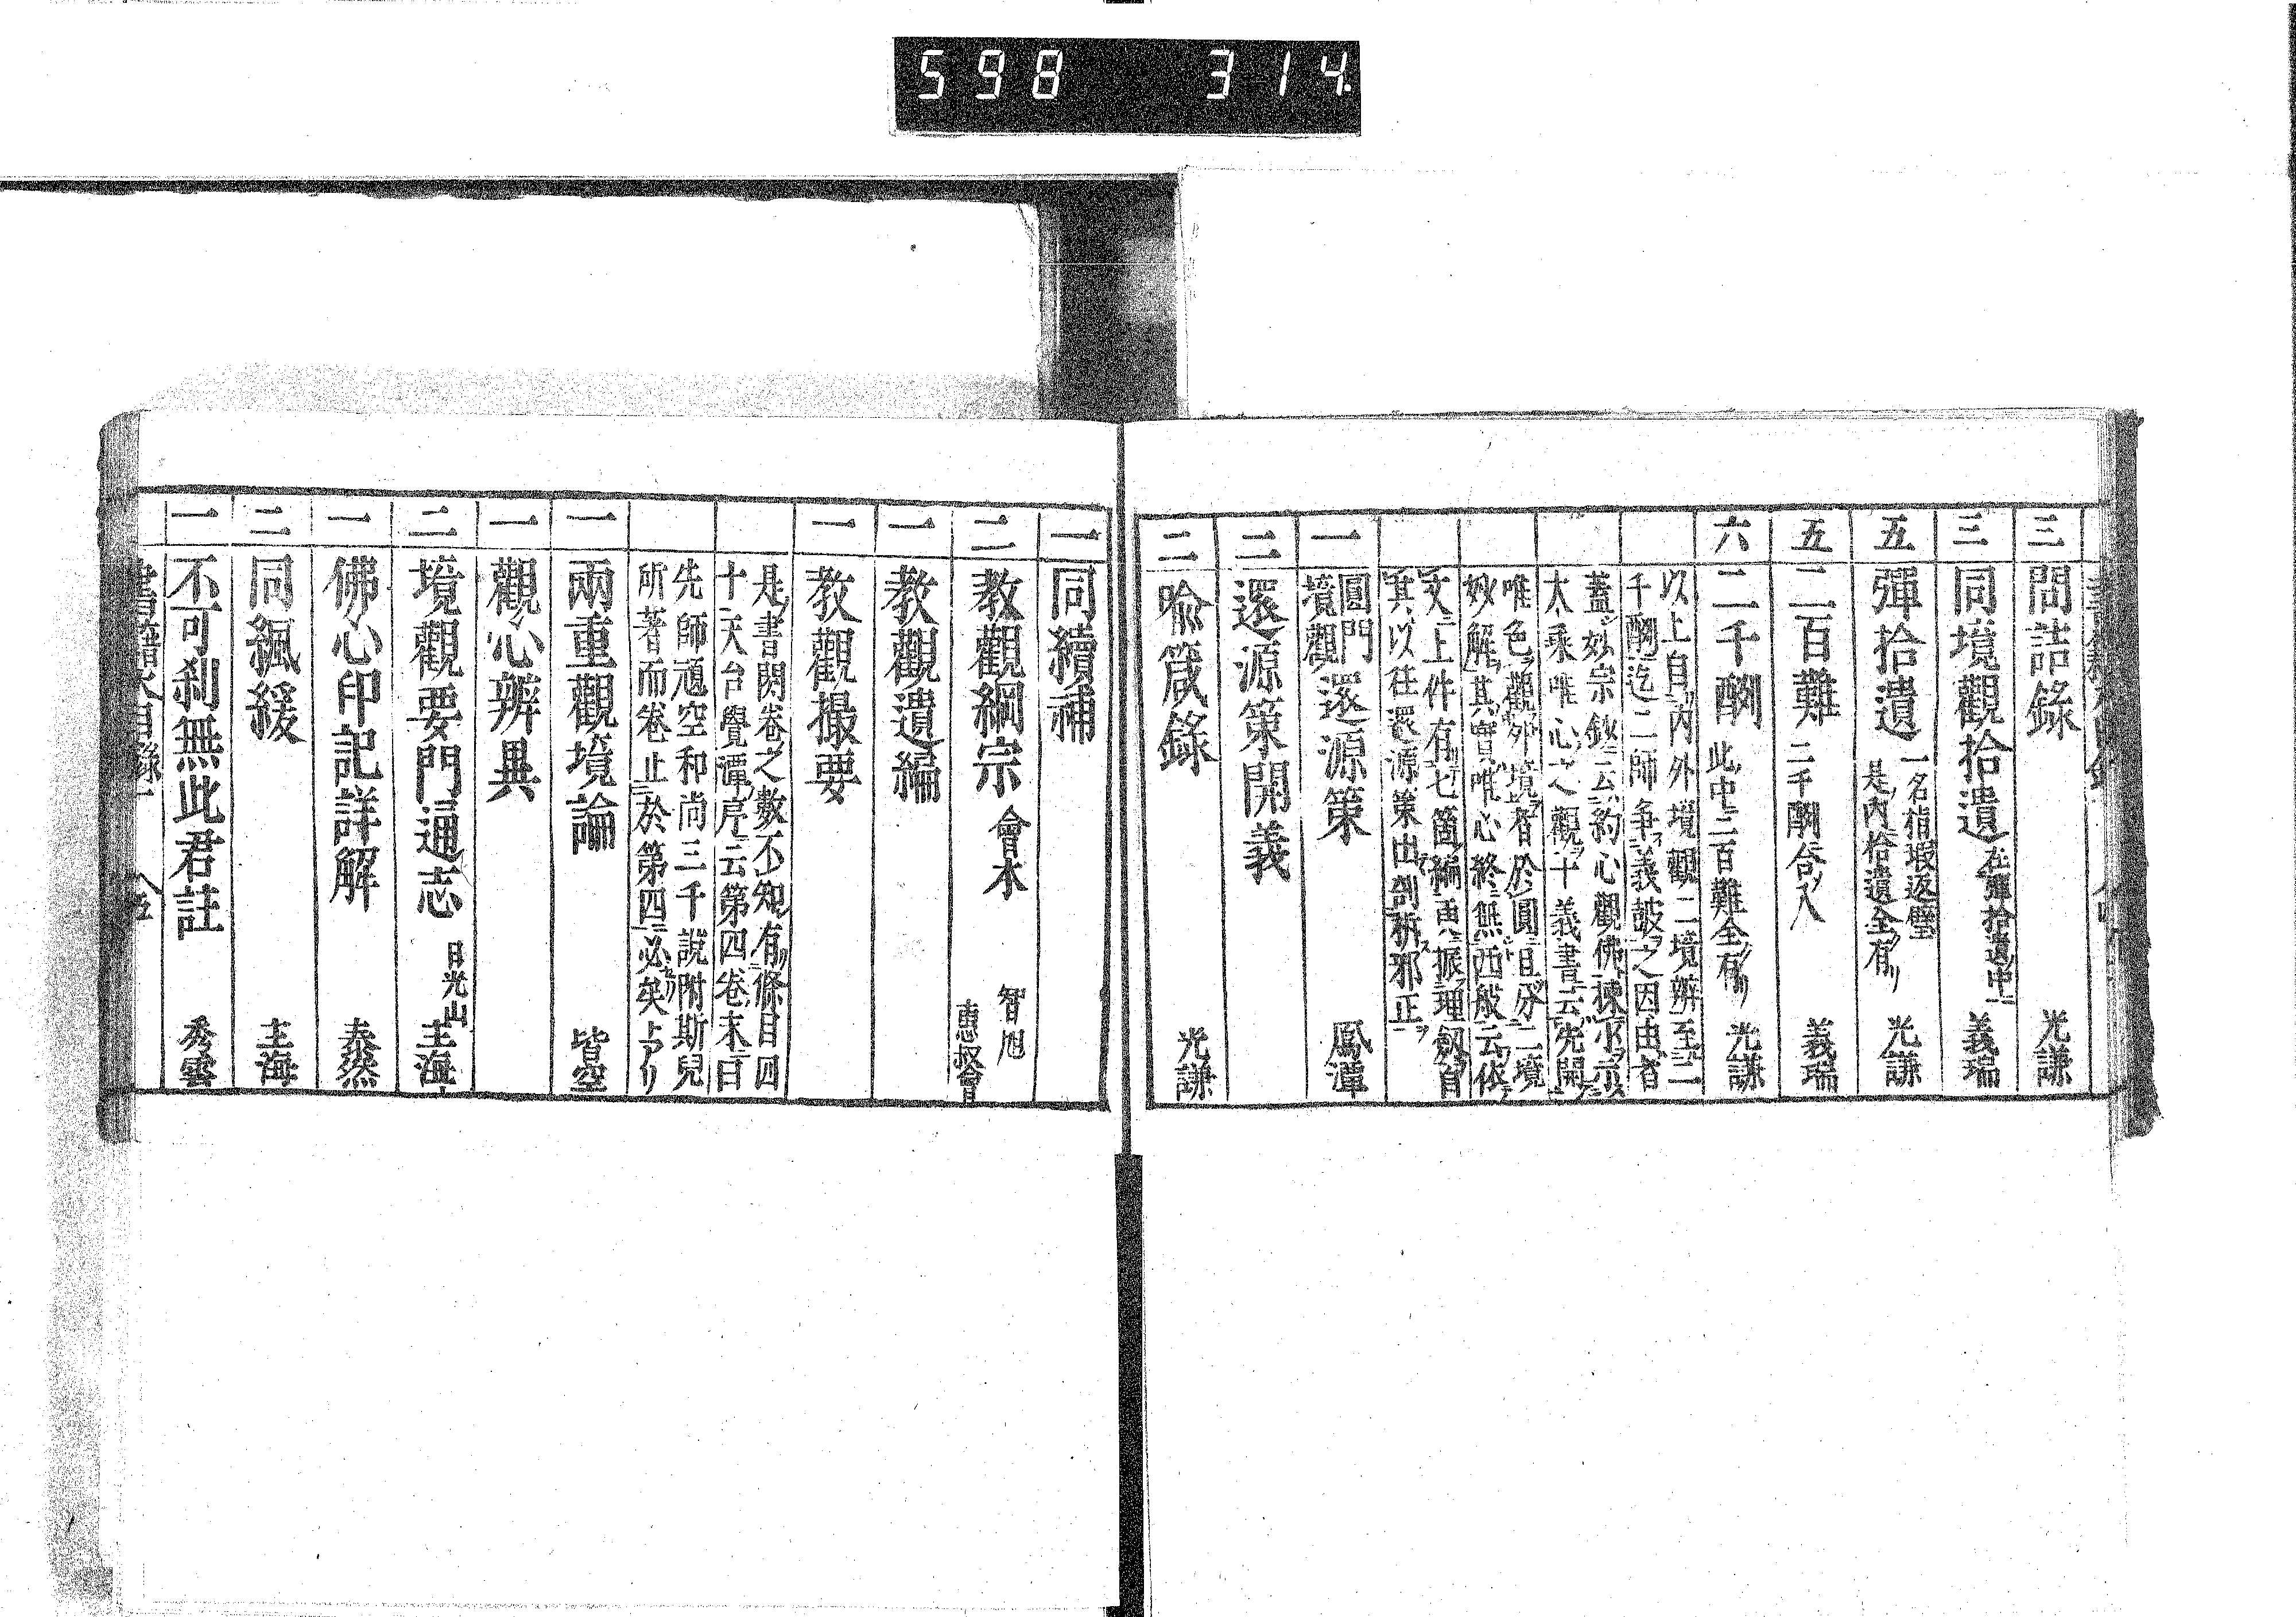 598 314
三 問詰錄 光謙
三 同境觀拾遺 在彈拾遺中 義瑞
五 彈拾遺 一名指瑕返璧
是内拾遺全有リ 光謙
五 二百難 二千酬合入 義瑞
六 二千酬 此中二百難全有リ 光謙
以上自内外境觀二境辨至二
千酬迄二師争義皷之因由者
蓋妙宗鈔云約心觀佛揀示云
太乘唯心之觀十義書云先開
唯色觀外境者於圓且分二境
妙解其實唯心終無西般云依
文上件有七箇編爽振理劔自
其以往還源策出剖柝邪正
一 圓門
境觀 還源策 鳳潭
二 還源策開義
二 喩箴錄 光謙
一 同續補
二 教觀綱宗 會本 智旭
惠叡會
一 教觀遺編
一 教觀撮要
是書閱卷之數不知有條目四
十天台覺潭序云第四卷末曰
先師頑空和尚三千說附斯兒
所著而卷止於第四必矣トアリ
一 兩重觀境論 皆空
一 觀心辨異
二 境觀要門通志 日光山
主海
一 佛心印記詳解 泰然
二 同緩 主海
一 不可刹無此君註 秀雲